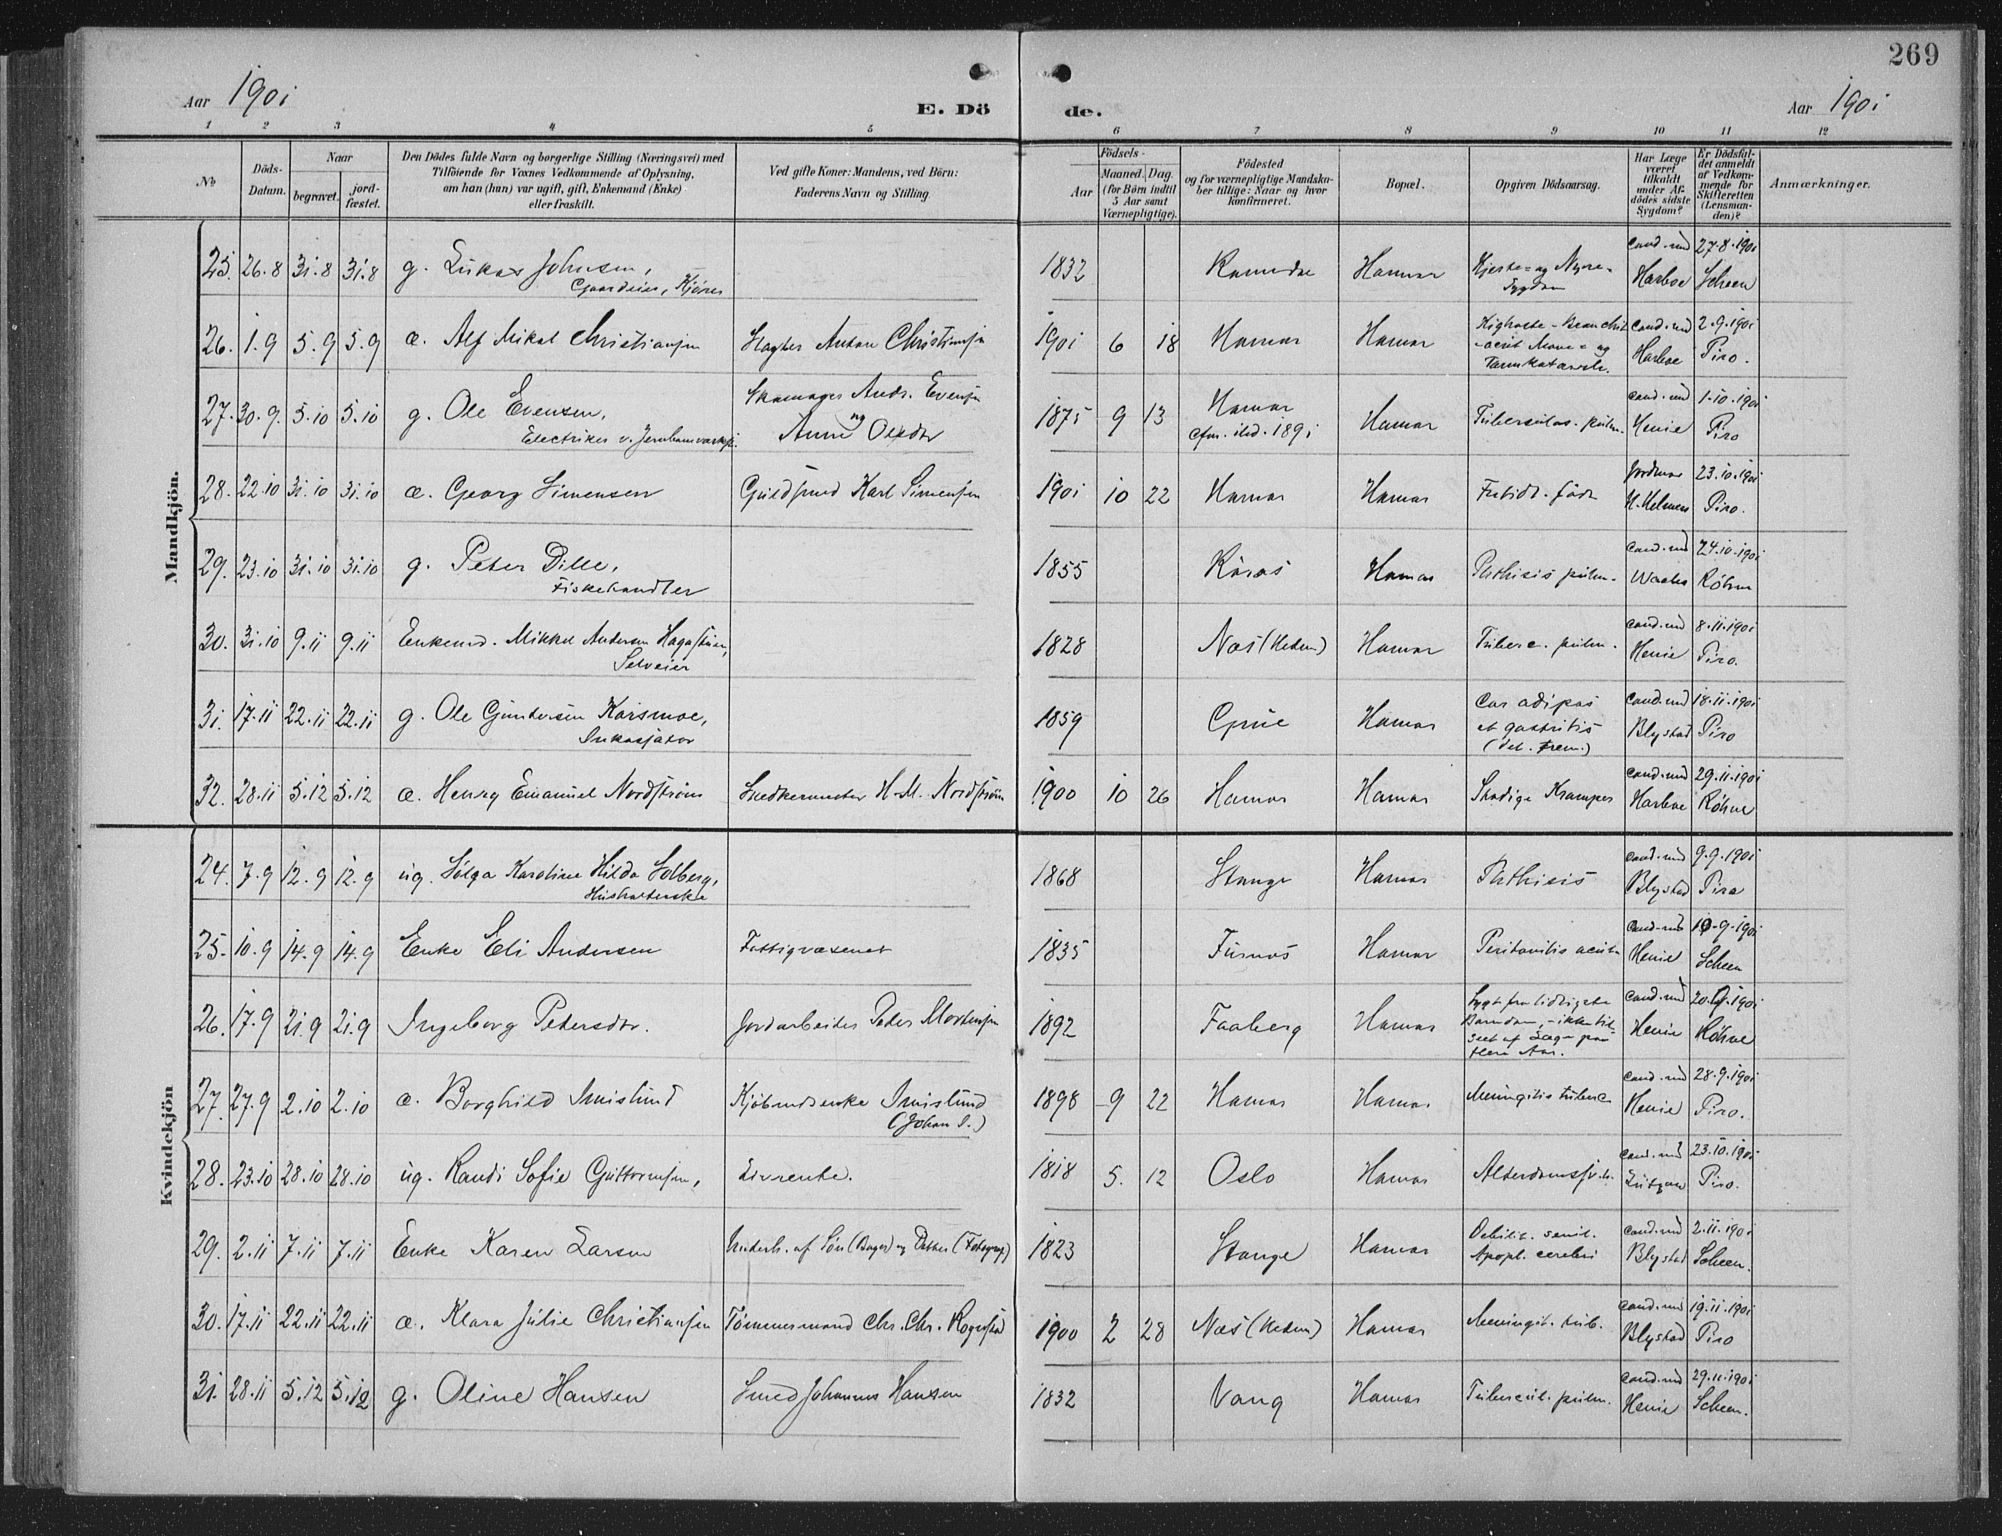 269
Aar 1901
E. Dö
de.
Aar 1901
1 2 3 4 5 6 7 8 9 10 11 12
No
Döds-
Datum.
Naar
begravet.
jord-
fæstet.
Den Dödes fulde Navn og borgerlige Stilling (Næringsvei) med
Tilföiende for Voxnes Vedkommende af Oplysning,
om han (hun) var ugift, gift, Enkemand (Enke)
eller fraskilt.
Ved gifte Koner: Mandens, ved Börn:
Faderens Navn og Stilling.
Födsels-
Aar
Maaned. Dag.
(for Börn indtil
5 Aar samt
Værnepligtige).
Födested
og for værnepligtige Mandska-
ber tillige: Naar og hvor
konfirmeret.
Bopæl.
Opgiven Dödsaarsag.
Har Læge
været
tilkaldt
under Af-
dödes sidste
Sygdom?
Er Dödsfal-
det anmeldt
af Vedkom-
mende for
Skifteretten
(Lensman-
den)?
Anmærkninger.
Mandkjön.
25. 26.8 31.8 31.8 g. Lukas Johnsen, 1832 Romsdal Hamar Hjerte- og Nyre- cand. med 27.8.1901
Gaardeier, Sygdom Harboe Scheen
26. 1.9 5.9 5.9 æ. Alf Mikal Christiansen Slagter Anton Christiansen 1901 6 18 Hamar Hamar Kighoste - Bronchit cand. med 2.9.1901
acut Mave- og Harboe Piro.
Tarmkatarrh.
27. 30.9. 5.10 5.10 g. Ole Evensen, Skomager Andr. Evensen 1875 9 13 Hamar Hamar Tuberculos. pulm. cand. med 1.10.1901
Electriker v. og Anne Olsdtr cfm. 1891 Henie Piro
28. 22.10 31.10 31.10 æ. Georg Simensen Guldsmed Karl Simensen 1901 10 22 Hamar Hamar Fortidl. født Jordmor 23.10.1901
Piro.
29. 23.10 31.10 31.10 g. Peter Dille, 1855 Röros Hamar Phthisis pulm. cand. med 24.10.1901
Fiskehandler Röhne
30. 31.10 9.11 9.11 Enkemd. Mikkel Andersen 1828 Næs (Hedm) Hamar Tuberc. pulm. cand. med 8.11.1901
Selveier Henie Piro.
31. 17.11 22.11 22.11 g. Ole Gundersen Korsmoe, 1859 Grue Hamar Cor adipos cand. med 18.11.1901
Inkassator et gastritis Blystad Piro
(del. trem.)
32. 28.11 5.12 5.12 æ. Henry Emanuel Nordström Snedkermester H. M. Nordström 1900 10 26 Hamar Hamar Stadige Kramper cand. med 29.11.1901
Harboe Röhne
Kvindekjön
24. 7.9 12.9 12.9 ug. Helga Karoline Hilda Solberg, 1868 Stange Hamar Phthisis cand. med 9.9.1901
Husholderske Blystad Piro
25. 10.9 14.9 14.9 Enke Eli Andersen Fattigvæsenet 1835 Furnes Hamar Peritonitis acut. cand. med 10.9.1901
Henie Scheen
26. 17.9 21.9 21.9 Ingeborg Petersdtr. Jordarbeider Peder Mortensen 1892 Faaberg Hamar Sygt fra tidligste cand. med 20.9.1901
Barndom, - ikke til- Henie Röhne
seet af Læge paa
flere Aar.
27. 27.9 2.10 2.10 æ. Borghild Imislund Kjöbmdsenke Imislund 1898 9 22 Hamar Hamar Meningitis tuberc. cand. med 28.9.1901
(Johan I.) Henie Piro.
28. 23.10 28.10 28.10 ug. Randi Sofie Guttormsen, Livrente. 1818 5. 12 Oslo Hamar Alderdomssv. cand. med 23.10.1901
Piro.
29. 2.11 7.11 7.11 Enke Karen Larsen Underh. af Søn (Bager) og Datter (Fotograf) 1823 Stange Hamar Debilit. senil. cand. med 2.11.1901
Apopl. cerebri Blystad Scheen.
30. 17.11 22.11 22.11 æ. Klara Julie Christiansen Tømmermand Chr. Chr. 1900 2 28 Næs (Hedm) Hamar Meningit. tub. cand. med 19.11.1901
Blystad Piro
31. 28.11 5.12 5.12 g. Oline Hansen Smed Johannes Hansen 1832 Vang Hamar Tubercul. pulm. cand. med 29.11.1901
Henie Scheen.